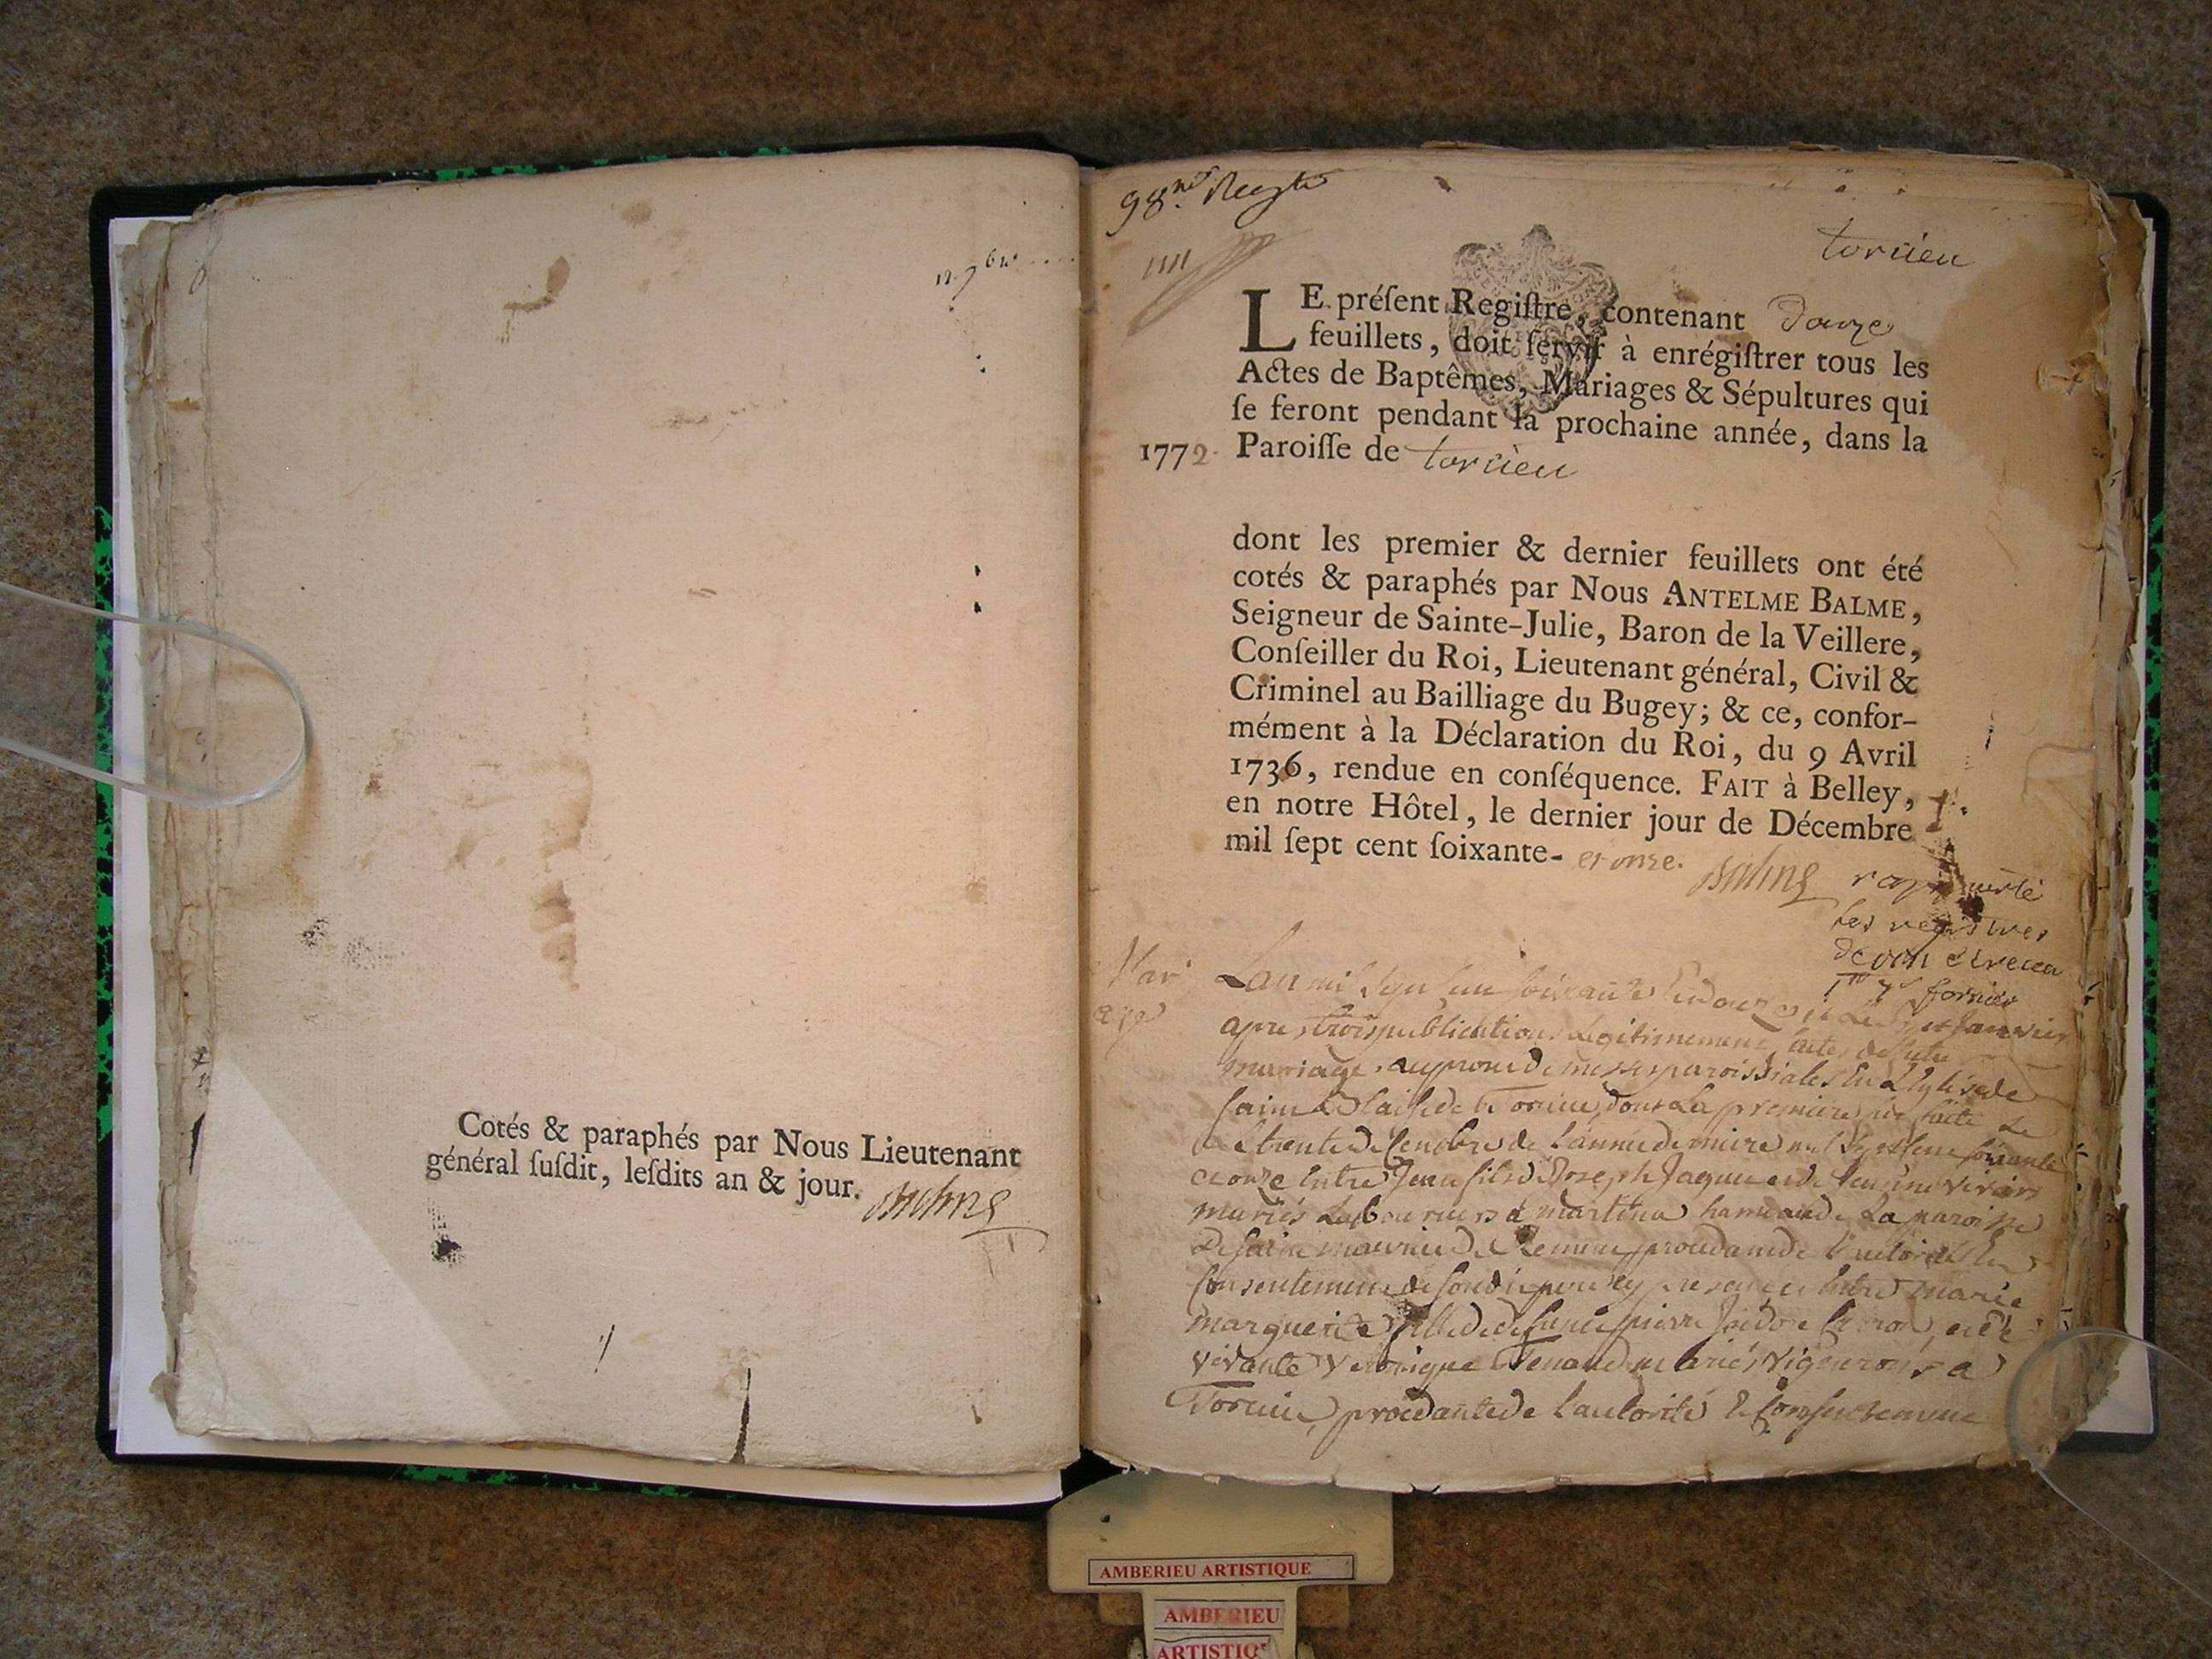 Cotés & paraphés par Nous Lieutenant
général ſuſdit, leſdits an & jour. Balme
98.me Regtre
torcieu
LE préſent Regiſtre, contenant douze
feuillets, doit ſervir à enrégiſtrer tous les
Actes de Baptêmes, Mariages & Sépultures qui
ſe feront pendant la prochaine année, dans la
1772. Paroiſſe de torcieu
dont les premier & dernier feuillets ont été
cotés & paraphés par Nous ANTELME BALME,
Seigneur de Sainte-Julie, Baron de la Veillere,
Conſeiller du Roi, Lieutenant général, Civil &
Criminel au Bailliage du Bugey; & ce, confor-
mément à la Déclaration du Roi, du 9 Avril
1736, rendue en conſéquence. FAIT à Belley,
en notre Hôtel, le dernier jour de Décembre
mil ſept cent ſoixante- et onze. Balme
les registres
Mari
age
Lan mil sept cent soixante et douze janvier
apres trois publications legitimement faites
mariage au prone de messes paroissiales en l'Eglise de
saint Blaise de Torcieu dont la premiere faite le
trente decembre de l'année derniere mil sept cent soixante
et onze entre Jean fils de Joseph Jaquet et de
mariés laboureurs a martina hameau de la paroisse
de saint maurice de Remens procedant de l'autorité
consentement de son pere et entre marie
marguerite fille de defunt pierre et de
vivante Veronique Tenand mariés vignerons a
Torcieu procedante de l'autorité & consentement
AMBERIEU ARTISTIQUE
AMBERIEU
ARTISTIQ